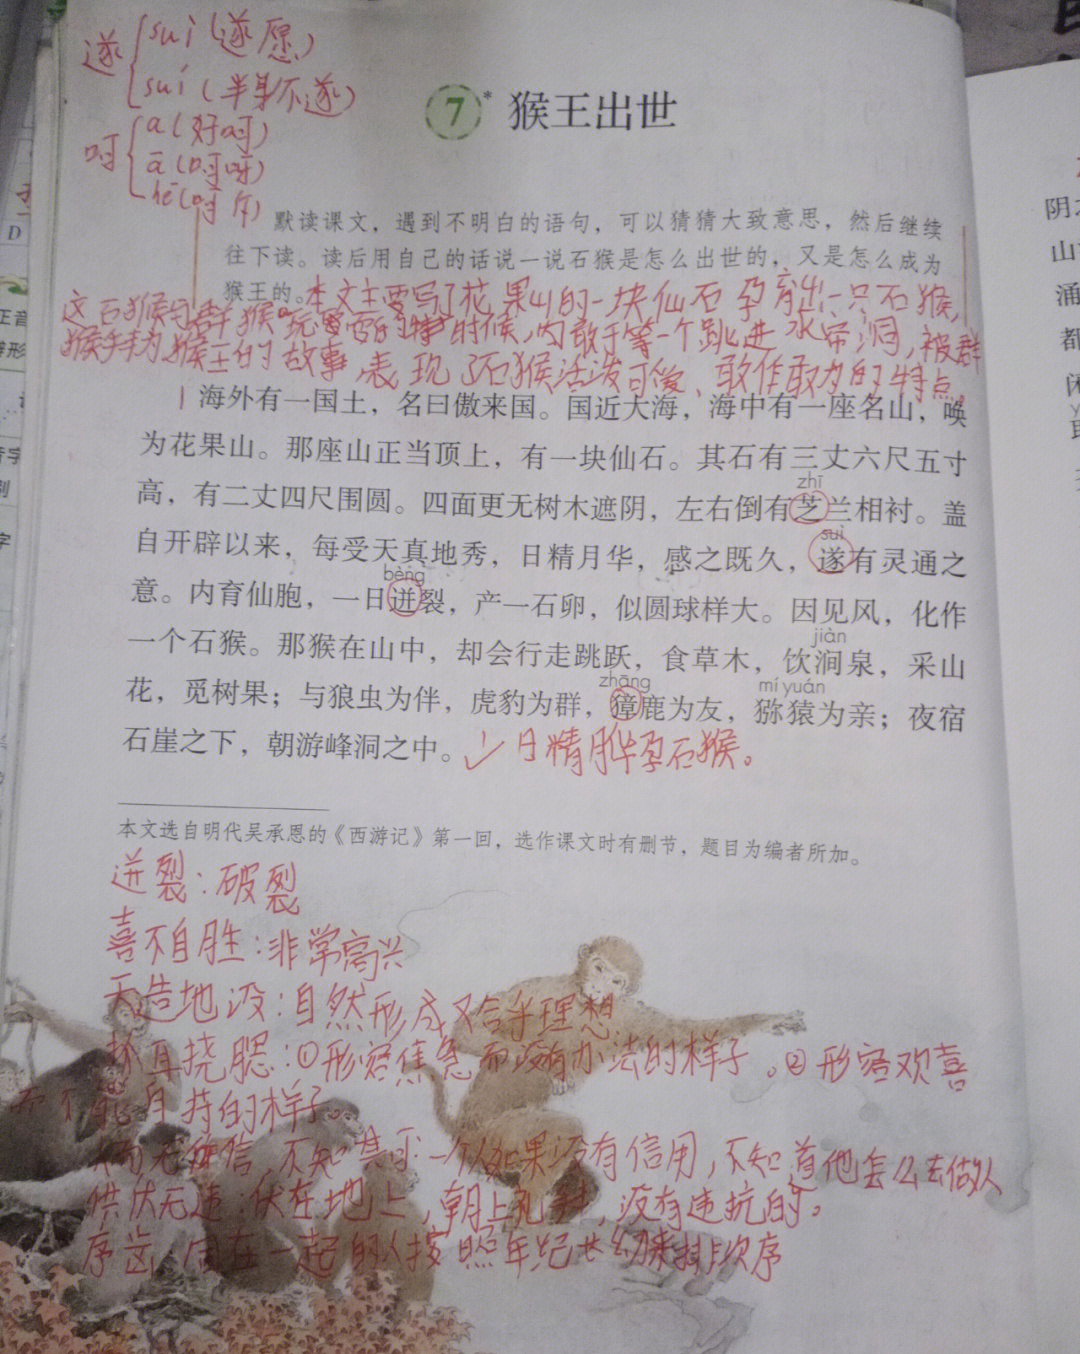 遂
suì(遂愿)
suí(半身不遂)
呵
a(好呵)
ā(呵呀)
hē(呵斥)
7* 猴王出世
默读课文，遇到不明白的语句，可以猜猜大致意思，然后继续
往下读。读后用自己的话说一说石猴是怎么出世的，又是怎么成为
猴王的。
本文主要写了花果山的一块仙石孕育出一只石猴，
这石猴与群猴玩耍的时候，因敢于第一个跳进水帘洞，被群
猴拜为猴王的故事，表现了石猴活泼可爱、敢作敢为的特点。
1 海外有一国土，名曰傲来国。国近大海，海中有一座名山，唤
为花果山。那座山正当顶上，有一块仙石。其石有三丈六尺五寸
zhī
高，有二丈四尺围圆。四面更无树木遮阴，左右倒有芝兰相衬。盖
suì
自开辟以来，每受天真地秀，日精月华，感之既久，遂有灵通之
bèng
意。内育仙胞，一日迸裂，产一石卵，似圆球样大。因见风，化作
jiàn
一个石猴。那猴在山中，却会行走跳跃，食草木，饮涧泉，采山
zhāng mí yuán
花，觅树果；与狼虫为伴，虎豹为群，獐鹿为友，猕猿为亲；夜宿
石崖之下，朝游峰洞之中。
日精月华孕石猴。
本文选自明代吴承恩的《西游记》第一回，选作课文时有删节，题目为编者所加。
迸裂：破裂
喜不自胜：非常高兴
天造地设：自然形成又合乎理想
抓耳挠腮：①形容焦急而没有办法的样子。②形容欢喜
而不能自持的样子。
人而无信，不知其可：一个人如果没有信用，不知道他怎么去做人
供伏无违：伏在地上，朝上礼拜，没有违抗的。
序齿：同在一起的人按照年纪长幼来排次序
阴
山
涌
都
闲
D
正音
字